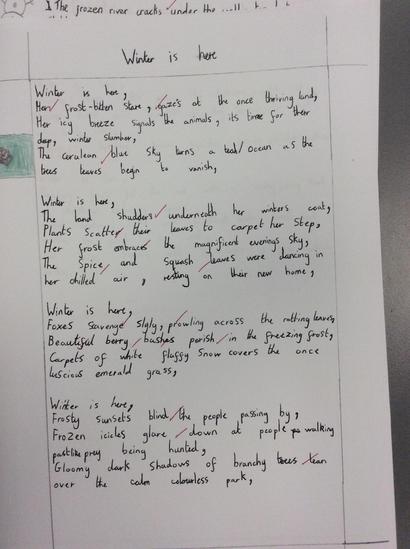 1 The frozen river cracks under the
Winter is here
Winter is here,
Her frost-bitten stare, gazes at the once thriving land,
Her icy breeze signals the animals, its time for their
deep, winter slumber,
The Cerulean blue sky turns a teal/ocean as the
trees leaves begin to vanish,
Winter is here,
The land shudders underneath her winters coat,
Plants scatter their leaves to carpet her step,
Her frost embraces the magnificent evenings sky,
The Spice and Squash leaves were dancing in
her chilled air, resting on their new home,
Winter is here,
Foxes scavenge slyly, prowling across the rotting leaves,
Beautiful berry bushes perish in the freezing frost,
Carpets of white fluffy snow covers the once
luscious emerald grass,
Winter is here,
Frosty sunsets blind the people passing by,
Frozen icicles glare down at people walking
past like prey being hunted,
Gloomy dark shadows of branchy trees lean
over the calm colourless park,